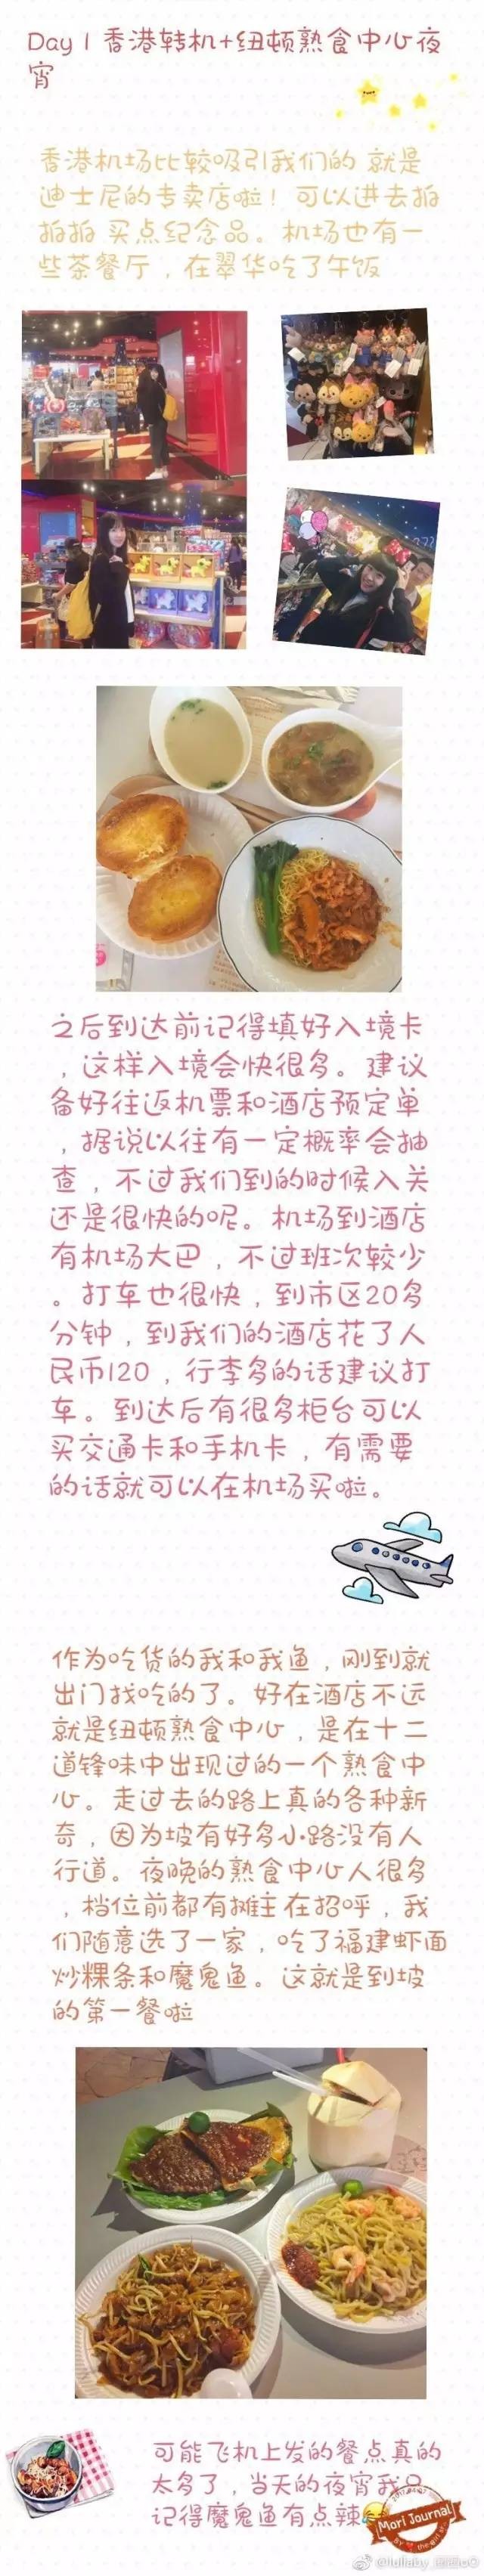 Day 1 香港转机+纽顿熟食中心夜
宵
香港机场比较吸引我们的 就是
迪士尼的专卖店啦！可以进去拍
拍拍 买点纪念品。机场也有一
些茶餐厅，在翠华吃了午饭
之后到达前记得填好入境卡
，这样入境会快很多。建议
备好往返机票和酒店预定单
，据说以往有一定概率会抽
查，不过我们到的时候入关
还是很快的呢。机场到酒店
有机场大巴，不过班次较少
。打车也很快，到市区20多
分钟，到我们的酒店花了人
民币120，行李多的话建议打
车。到达后有很多柜台可以
买交通卡和手机卡，有需要
的话就可以在机场买啦。
作为吃货的我和我鱼，刚到就
出门找吃的了。好在酒店不远
就是纽顿熟食中心，是在十二
道锋味中出现过的一个熟食中
心。走过去的路上真的各种新
奇，因为坡有好多小路没有人
行道。夜晚的熟食中心人很多
，档位前都有摊主在招呼，我
们随意选了一家，吃了福建虾面
炒粿条和魔鬼鱼。这就是到坡
的第一餐啦
可能飞机上发的餐点真的
太多了，当天的夜宵我只
记得魔鬼鱼有点辣
Mori Journal
@lullaby_